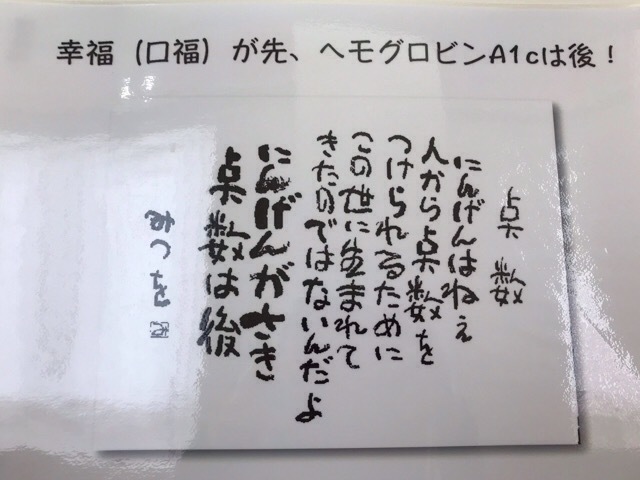 幸福（口福）が先、ヘモグロビンA1cは後！
点数
にんげんはねぇ
人から点数を
つけられるために
この世に生まれて
きたのではないんだよ
にんげんがさき
点数は後
みつを